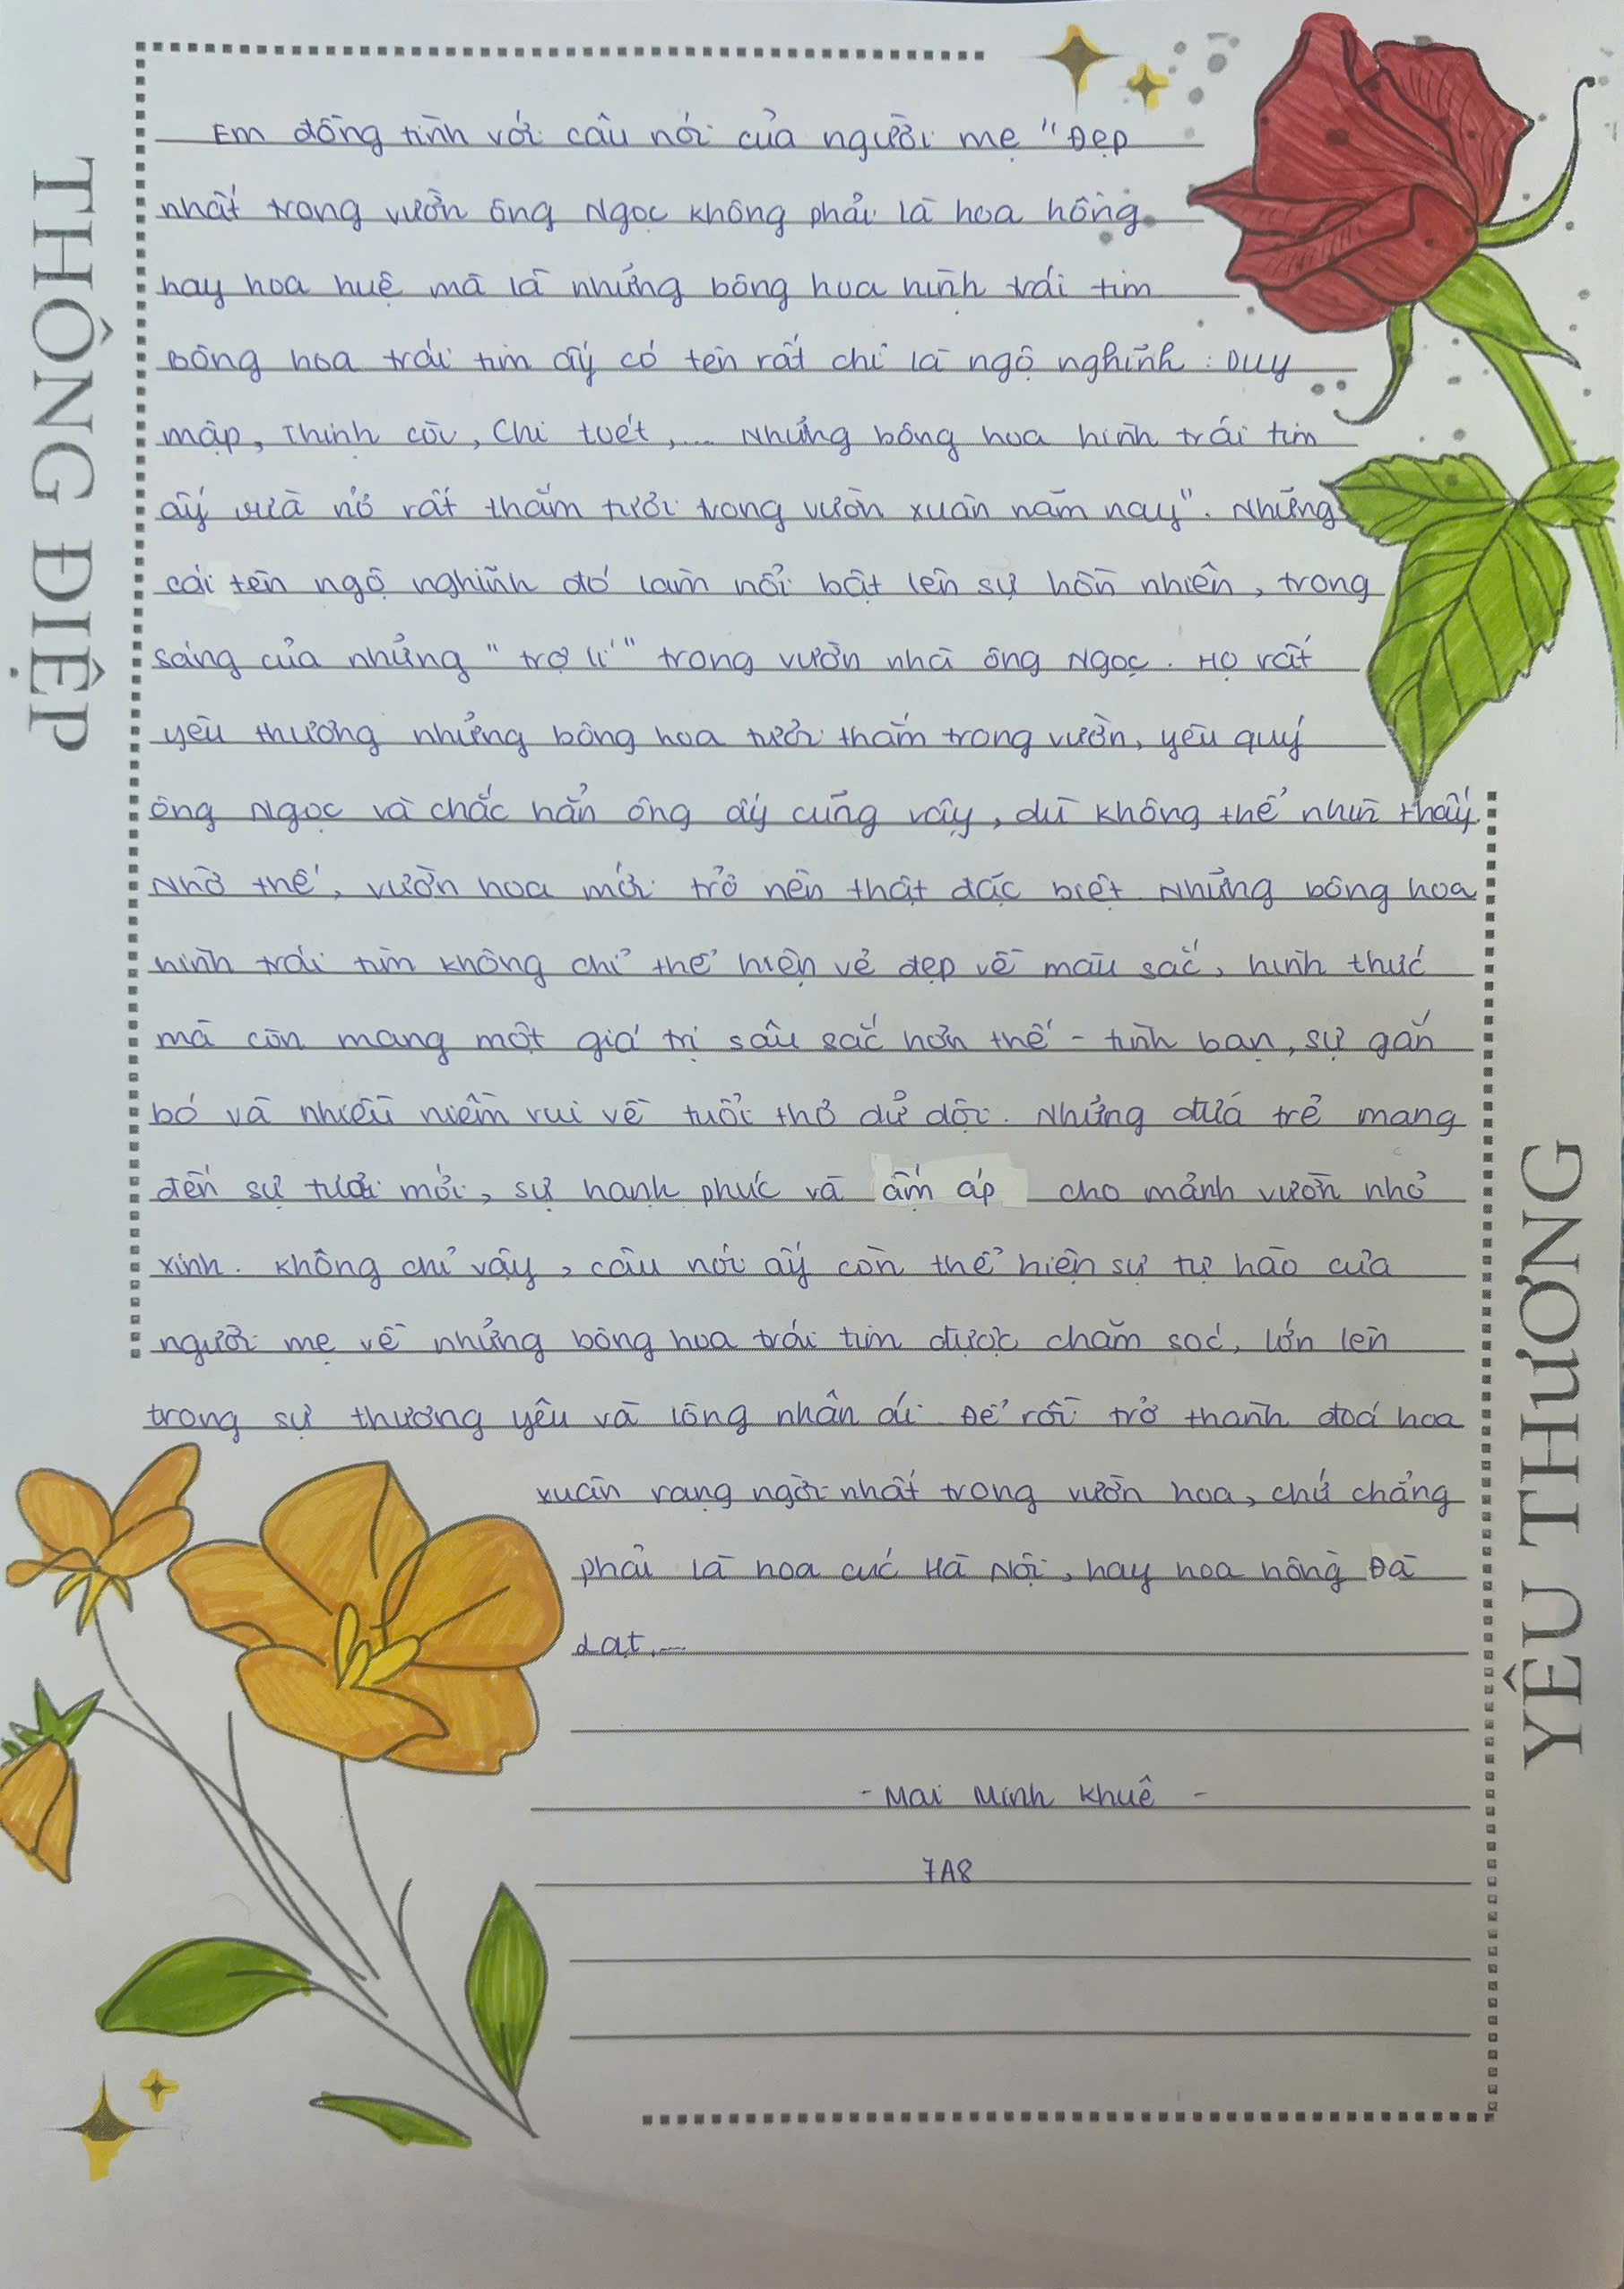 THÔNG ĐIỆP
Em đồng tình với câu nói của người mẹ "Đẹp
nhất trong vườn ông Ngọc không phải là hoa hồng
hay hoa huệ mà là những bông hoa hình trái tim
Bông hoa trái tim ấy có tên rất chi là ngộ nghĩnh : Duy
mập, Thịnh còi, Chi toét,... Những bông hoa hình trái tim
ấy vừa nở rất thắm tươi trong vườn xuân năm nay". Những
cái tên ngộ nghĩnh đó làm nổi bật lên sự hồn nhiên, trong
sáng của những "trợ lí" trong vườn nhà ông Ngọc. Họ rất
yêu thương những bông hoa tươi thắm trong vườn, yêu quý
ông Ngọc và chắc hẳn ông ấy cũng vậy, dù không thể nhìn thấy.
Nhờ thế, vườn hoa mới trở nên thật đặc biệt. Những bông hoa
hình trái tim không chỉ thể hiện vẻ đẹp về màu sắc, hình thức
mà còn mang một giá trị sâu sắc hơn thế - tình bạn, sự gắn
bó và nhiều niềm vui về tuổi thơ dữ dội. Những đứa trẻ mang
đến sự tươi mới, sự hạnh phúc và ấm áp cho mảnh vườn nhỏ
xinh. Không chỉ vậy, câu nói ấy còn thể hiện sự tự hào của
người mẹ về những bông hoa trái tim được chăm sóc, lớn lên
trong sự thương yêu và lòng nhân ái. Để rồi trở thành đoá hoa
xuân rạng ngời nhất trong vườn hoa, chứ chẳng
phải là hoa cúc Hà Nội, hay hoa hồng Đà
Lạt,...
- Mai Minh Khuê -
7A8
YÊU THƯƠNG